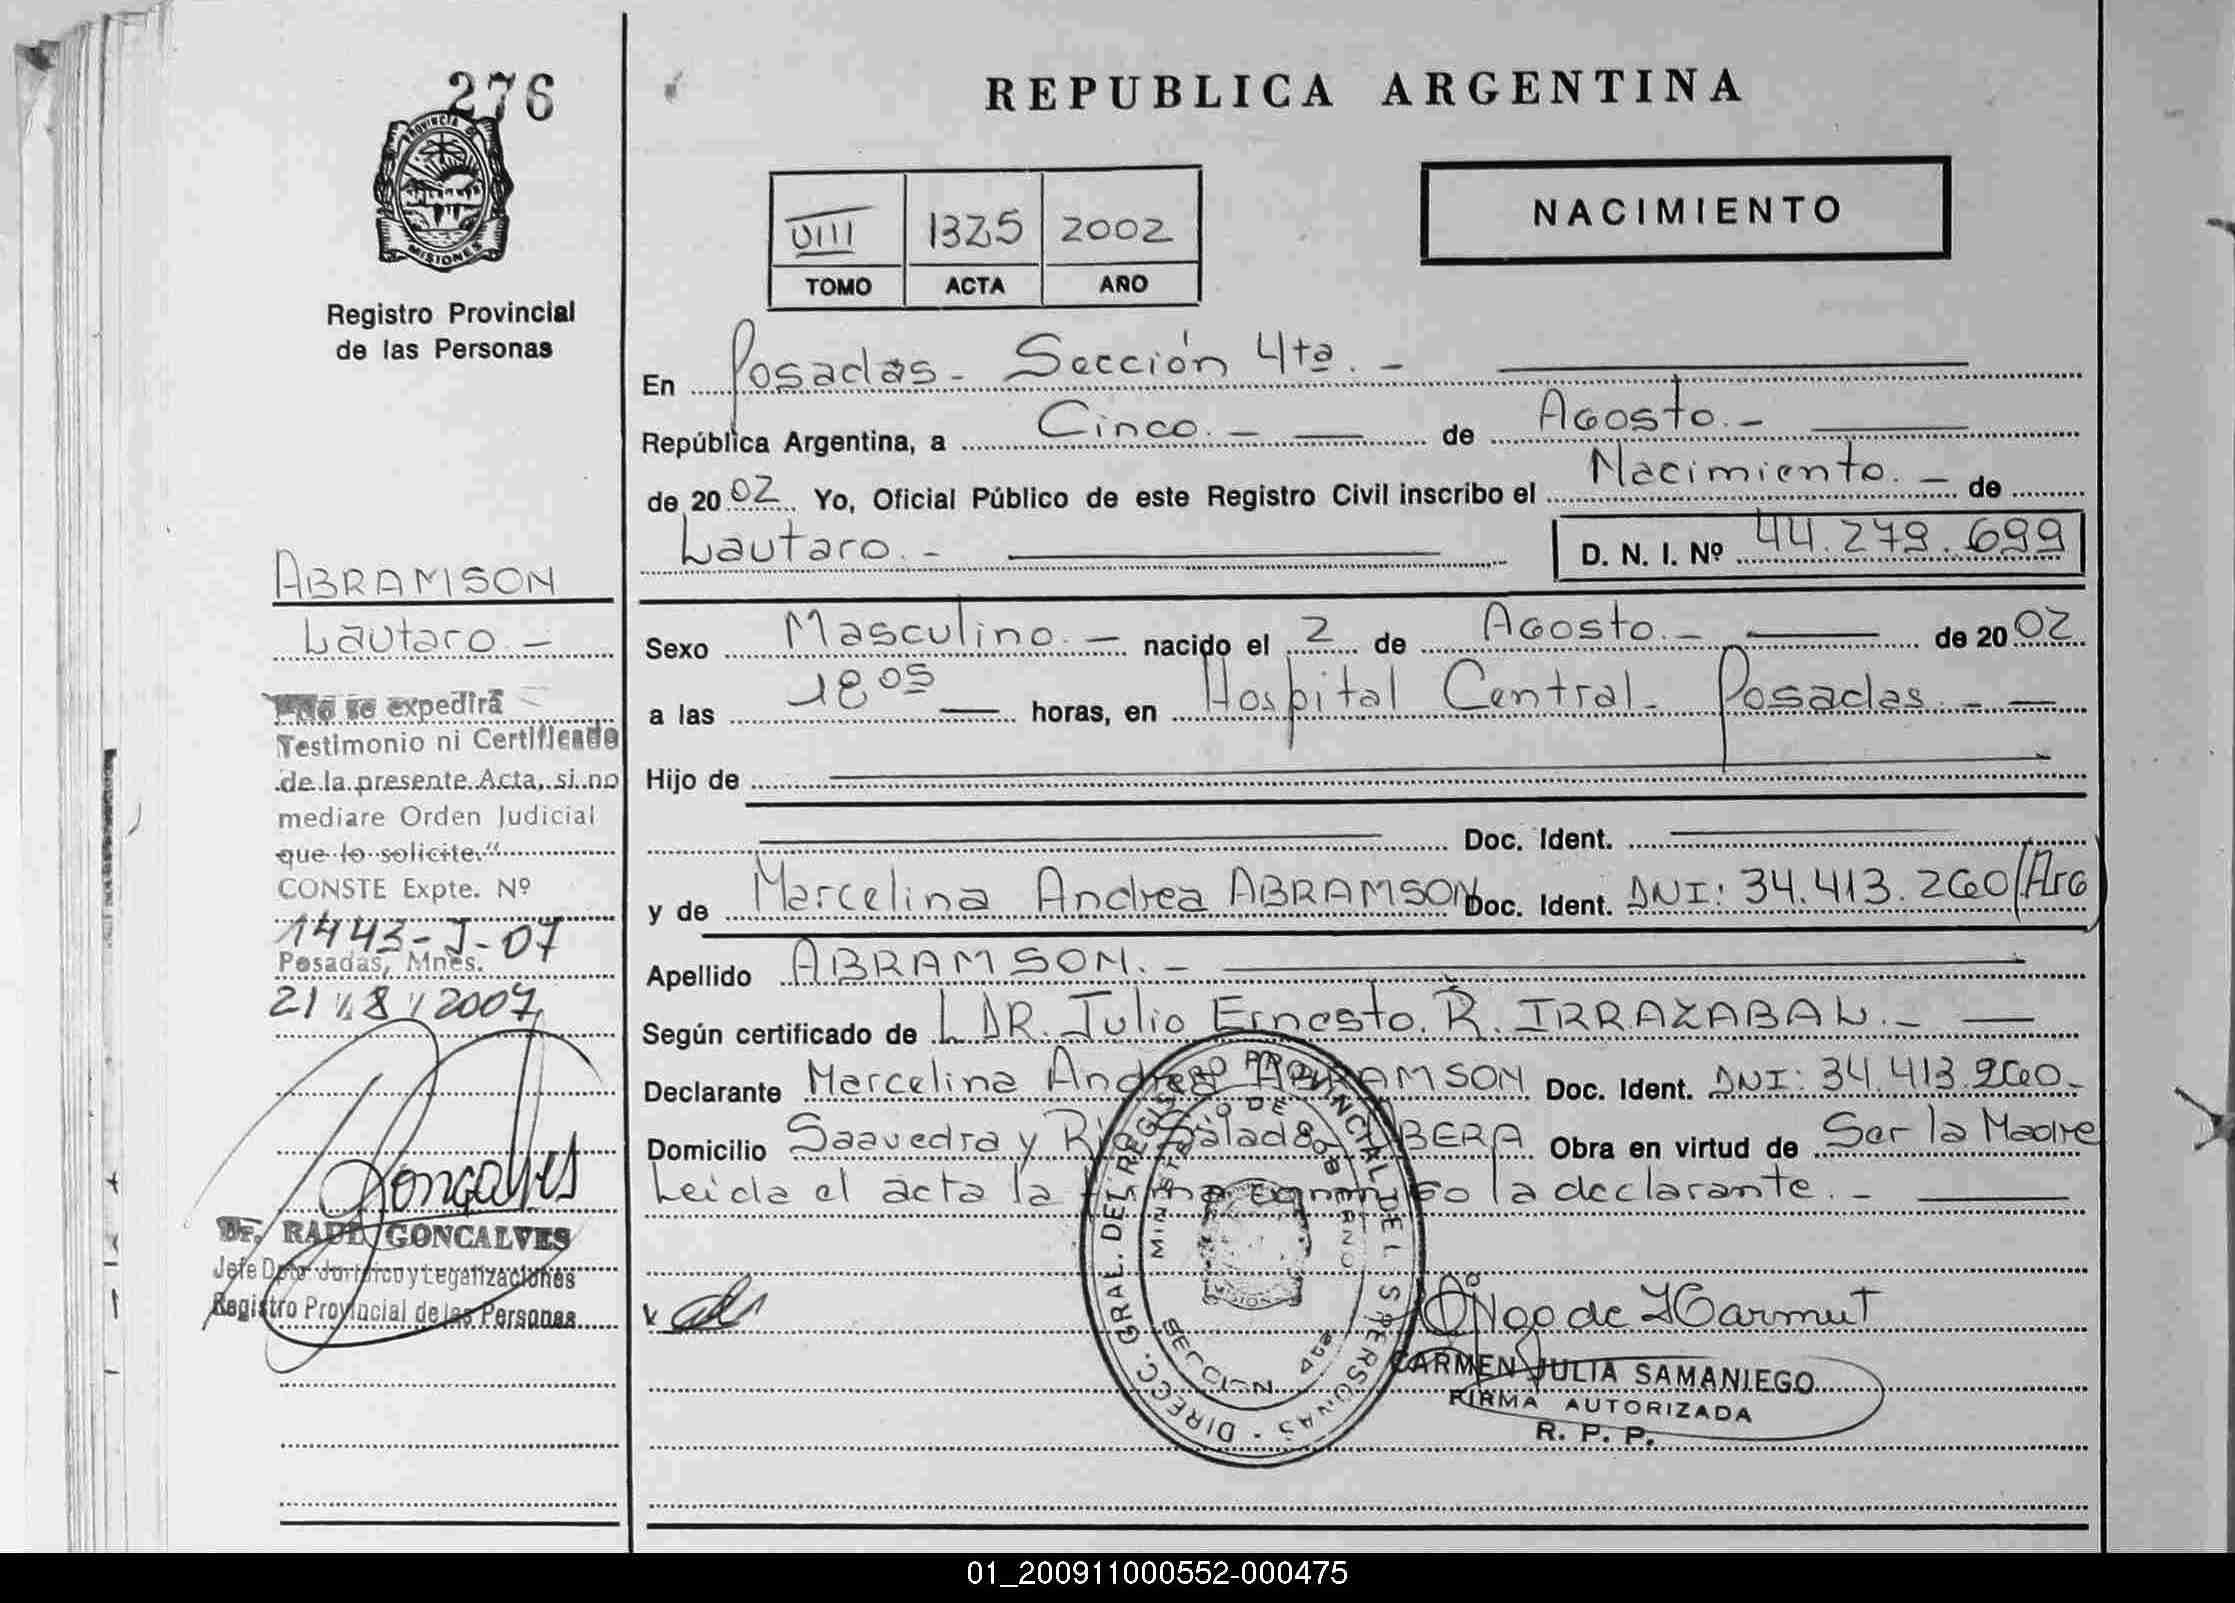 276
PROVINCIA DE
MISIONES
Registro Provincial
de las Personas
ABRAMSON
Lautaro. -
No se expedirá
Testimonio ni Certificado
de la presente Acta, si no
mediare Orden Judicial
que lo solicite."
CONSTE Expte. Nº
1443-J-07
Posadas, Mnes.
21/8/2007
Goncalves
Dr. RAUL GONCALVES
Jefe Dpto Jurídico y Legalizaciones
Registro Provincial de las Personas
REPUBLICA ARGENTINA
VIII 1325 2002
TOMO ACTA AÑO
NACIMIENTO
En Posadas - Sección 4ta. -
República Argentina, a Cinco. - de Agosto. -
de 2002 Yo, Oficial Público de este Registro Civil inscribo el Nacimiento. - de
Lautaro. - D. N. I. Nº 44.279.699
Sexo Masculino. - nacido el 2 de Agosto. - de 2002
a las 18 05 horas, en Hospital Central - Posadas. -
Hijo de
Doc. Ident.
y de Marcelina Andrea ABRAMSON Doc. Ident. DNI: 34.413.260/Arg
Apellido ABRAMSON. -
Según certificado de L DR. Julio Ernesto. R. IRRAZABAL. -
Declarante Marcelina Andrea ABRAMSON Doc. Ident. DNI: 34.413.260.-
Domicilio Saavedra y Río Salado - OBERA Obra en virtud de Ser la Madre
Leida el acta la firma conmigo la declarante. -
DIRECC. GRAL. DEL REGISTRO PROVINCIAL DE LAS PERSONAS
MINISTERIO DE GOBIERNO
SECCION 4ta
MISIONES
CARMEN JULIA SAMANIEGO
FIRMA AUTORIZADA
R. P. P.
01_200911000552-000475